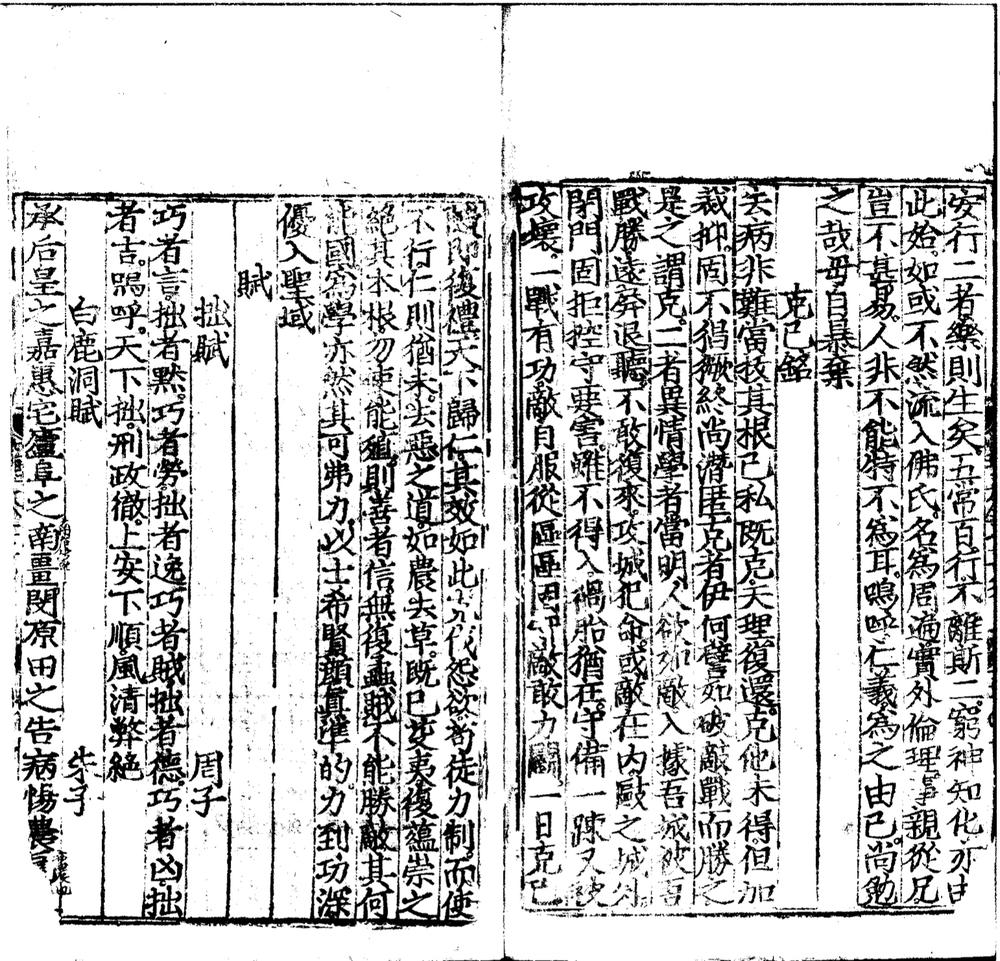 安行二者樂則生矣五常百行不離斯二窮神知化亦由
此始如或不然流入佛氏名爲周遍實外倫理事親從兄
豈不甚易人非不能特不爲耳嗚呼仁義爲之由已尚勉
之哉毋自暴棄
克己銘
去病非難當拔其根己私既克天理復還克他未得但加
裁抑固不猖獗終尚潛匿克者伊何譬如破敵戰而勝之
是之謂克二者異情學者當明人欲如敵入據吾城彼吾
戰勝遠奔退聽不敢復來攻城犯命或敵在内敺之城外
閉門固拒控守要害雖不得入禍胎猶在守備一踈又
攻壞一戰有功敵自服從區區因 敵敢力鬭一日克己
復禮天下歸仁其效如此 伐怨欲苟徒力制而使
不行仁則猶未去惡之道如農去草既已芟夷復蘊崇之
絕其本根勿使能殖則善者信無復蟊賊不能勝敵其何
能國爲學亦然其可弗力以士希賢顔真準的力到功深
優入聖域
賦
拙賦 周子
巧者言拙者默巧者勞拙者逸巧者賊拙者德巧者凶拙
者吉嗚呼天下拙刑政徹上安下順風清弊絶
白鹿洞賦 朱子
承后皇之嘉惠宅廬阜之南畺閔原田之告病惕農